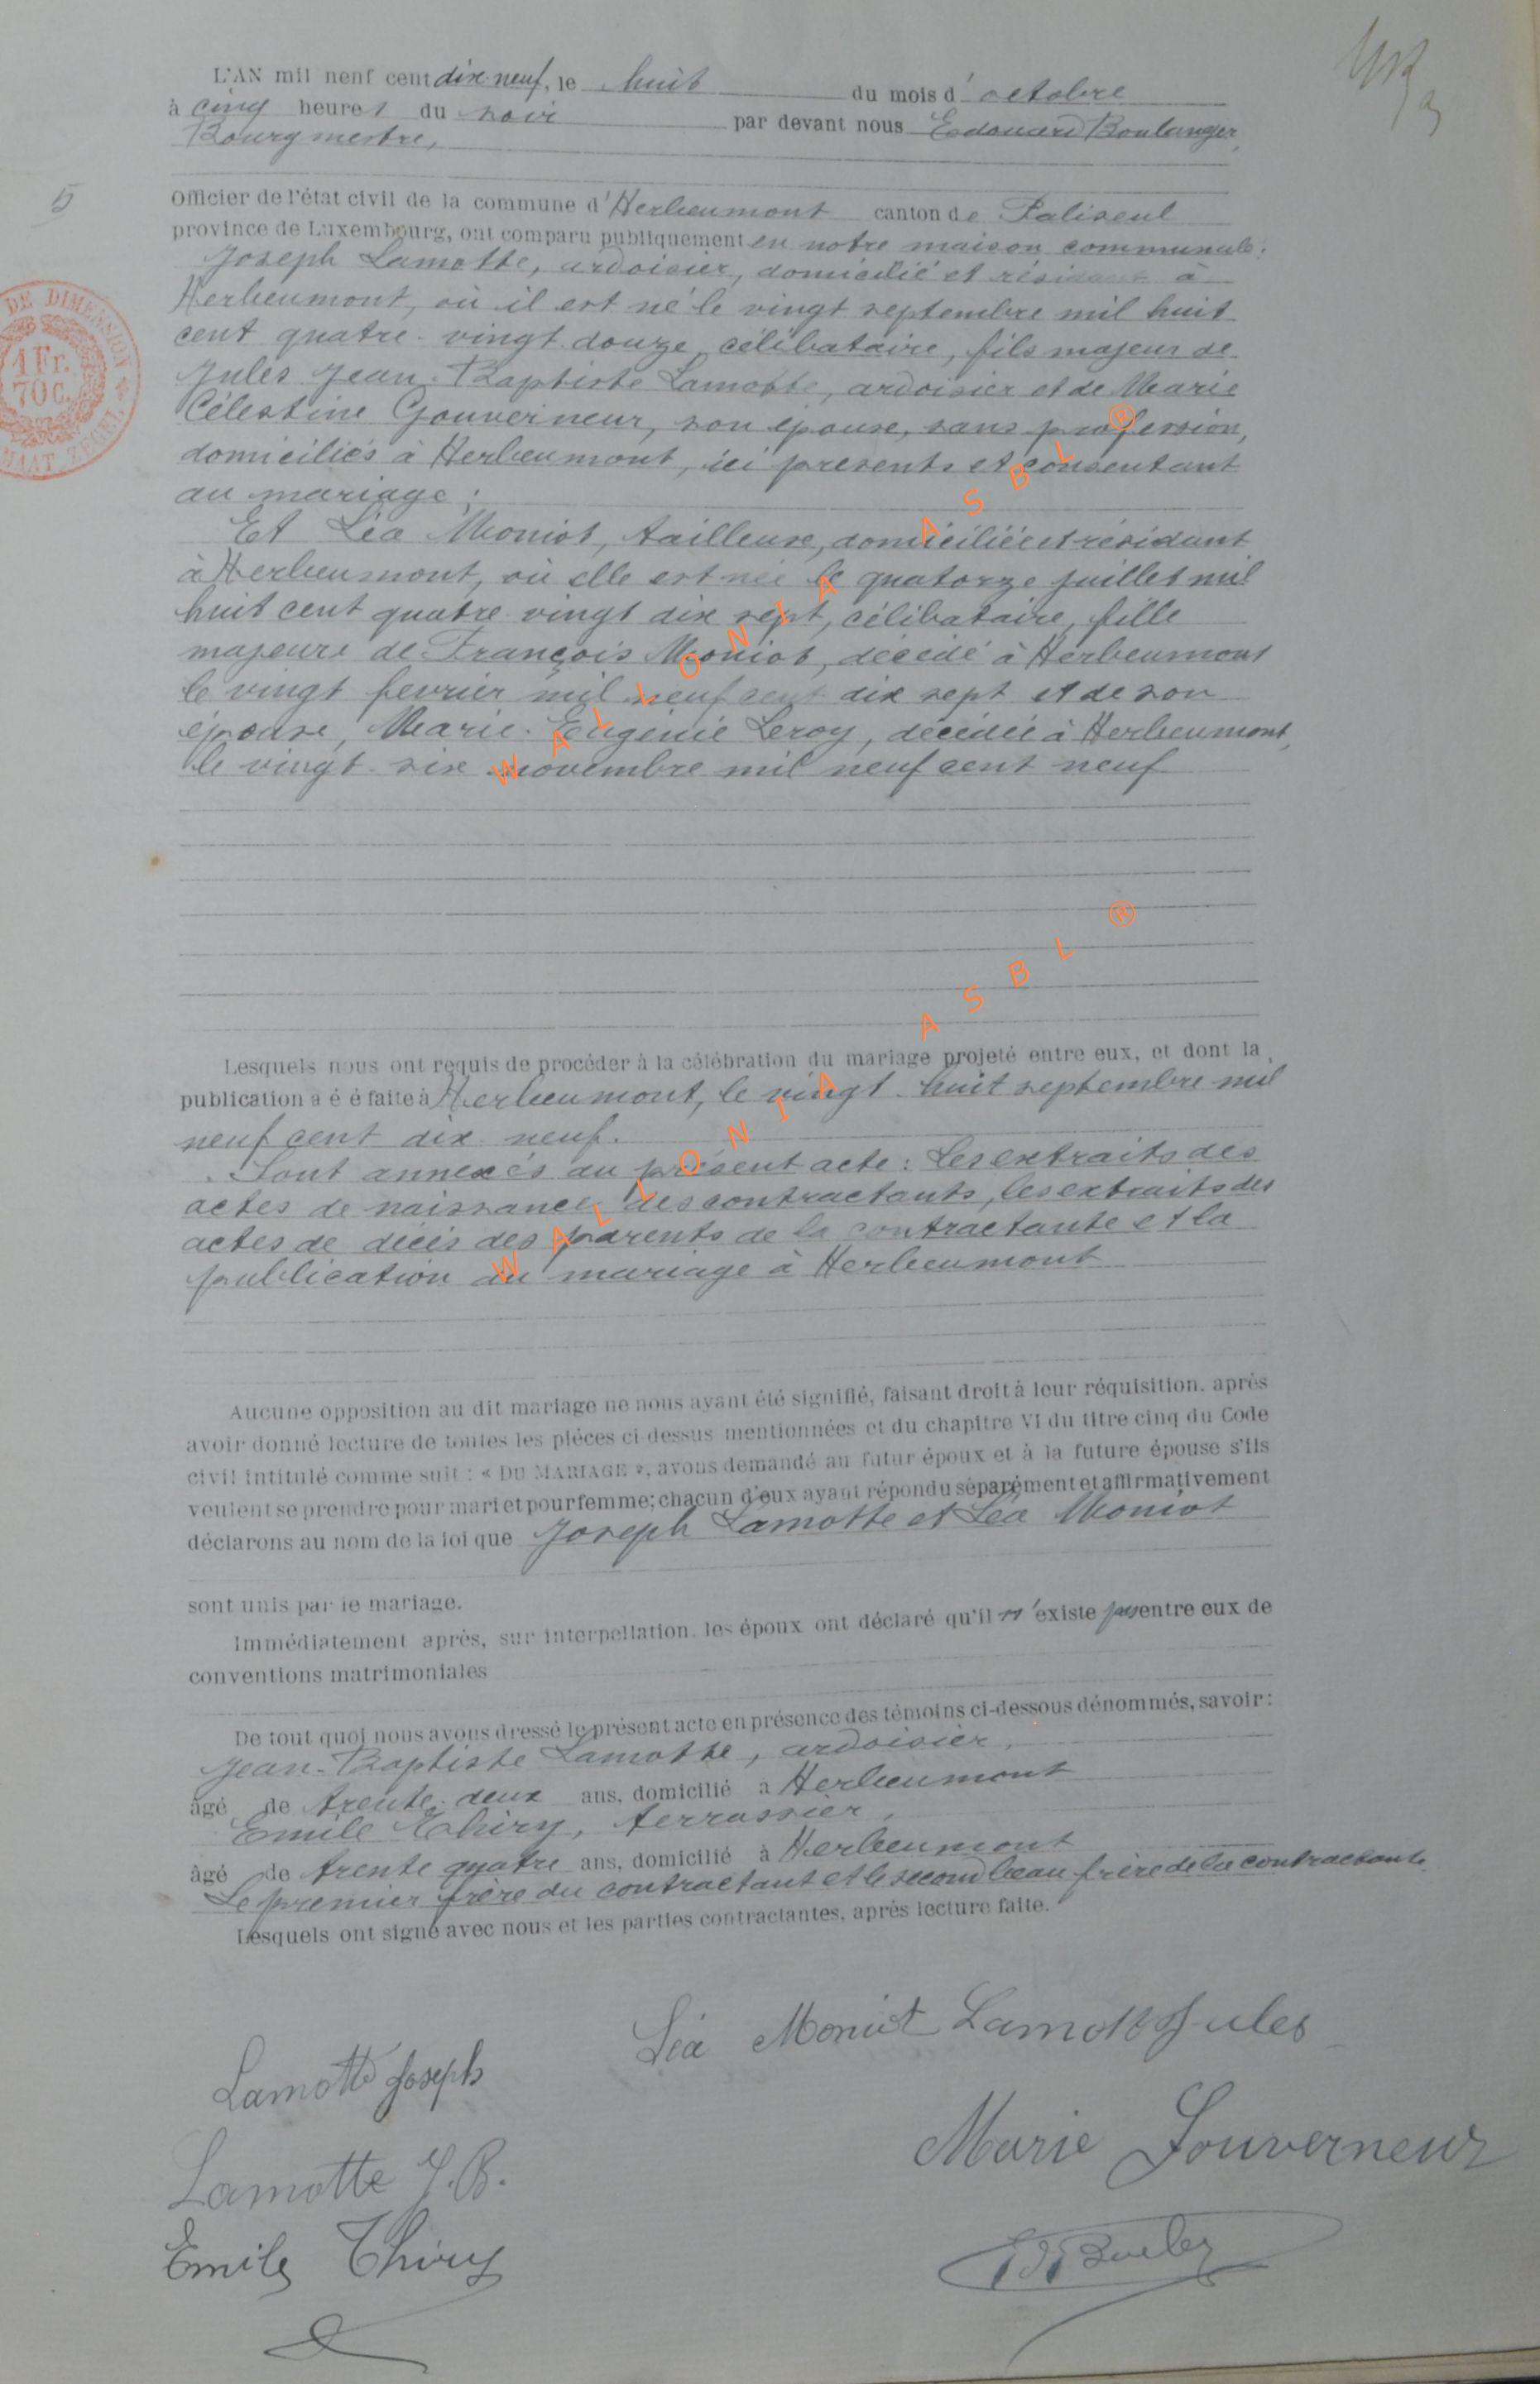 L'AN mil neuf cent dix-neuf, le huit du mois d'octobre
à cinq heures du soir par devant nous Edouard Boulanger,
Bourgmestre,
Officier de l'état civil de la commune d'Herbeumont canton de Paliseul
province de Luxembourg, ont comparu publiquement en notre maison communale:
Joseph Lamotte, ardoisier, domicilié et résidant à
Herbeumont, où il est né le vingt septembre mil huit
cent quatre-vingt-douze, célibataire, fils majeur de
Jules Jean-Baptiste Lamotte, ardoisier et de Marie
Célestine Gouverneur, son épouse, sans profession,
domiciliés à Herbeumont, ici présents et consentant
au mariage;
Et Léa Moniot, tailleuse, domiciliée et résidant
à Herbeumont, où elle est née le quatorze juillet mil
huit cent quatre-vingt dix sept, célibataire, fille
majeure de François Moniot, décédé à Herbeumont
le vingt février mil neuf cent dix sept et de son
épouse, Marie-Eugénie Leroy, décédée à Herbeumont,
le vingt-six novembre mil neuf cent neuf
Lesquels nous ont requis de procéder à la célébration du mariage projeté entre eux, et dont la
publication a é é faite à Herbeumont, le vingt-huit septembre mil
neuf cent dix-neuf.
Sont annexés au présent acte: Les extraits des
actes de naissance des contractants, les extraits des
actes de décès des parents de la contractante et la
publication du mariage à Herbeumont
Aucune opposition au dit mariage ne nous ayant été signifié, faisant droit à leur réquisition, après
avoir donné lecture de toutes les pièces ci dessus mentionnées et du chapitre VI du titre cinq du Code
civil intitulé comme suit : « DU MARIAGE », avons demandé au futur époux et à la future épouse s'ils
veulent se prendre pour mari et pour femme; chacun d'eux ayant répondu séparément et affirmativement
déclarons au nom de la loi que Joseph Lamotte et Léa Moniot
sont unis par le mariage.
Immédiatement après, sur interpellation, les époux ont déclaré qu'il n'existe pas entre eux de
conventions matrimoniales
De tout quoi nous avons dressé le présent acte en présence des témoins ci-dessous dénommés, savoir:
Jean-Baptiste Lamotte, ardoisier,
âgé de trente-deux ans, domicilié à Herbeumont
Emile Thiry, terrassier,
âgé de trente quatre ans, domicilié à Herbeumont
Le premier frère du contractant et le second beau frère de la contractante
Lesquels ont signé avec nous et les parties contractantes, après lecture faite.
Léa Moniot Lamotte Jules
Lamotte Joseph
Marie Gouverneur
Lamotte J.B.
Emile Thiry
5
DE DIMENSION
1 Fr.
70 C.
MAAT ZEGEL
WALLONIA ASBL ®
WALLONIA ASBL ®